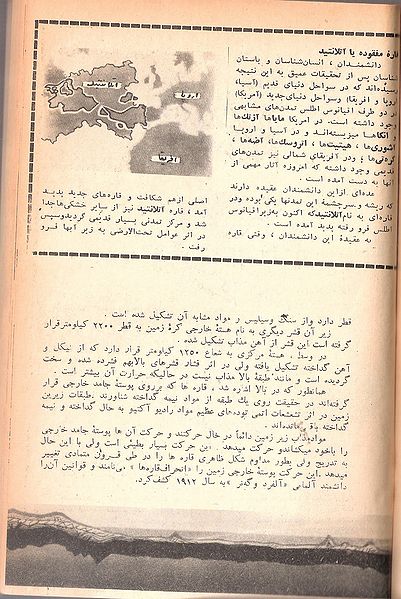 قاره مفقوده یا آتلانتید
دانشمندان ، انسان‌شناسان و باستان
شناسان پس از تحقیقات عمیق به این نتیجه
رسیده‌اند که در سواحل دنیای قدیم (آسیا،
اروپا و افریقا) وسواحل دنیای جدید (آمریکا)
در دو طرف اقیانوس اطلس تمدن های مشابهی
وجود داشته است. در امریکا مایاها آزتك‌ها
و انکاها میزیسته‌اند و در آسیا و اروپا
آشوری‌ها ، هیتیت‌ها ، اتروسك‌ها،
ها ؛ ودر آفریقای شمالی نیز تمدن‌های
قدیمی وجود داشته که امروزه آثار مهمی از
آنها به دست آمده است .
عده‌ای ازاین دانشمندان عقیده دارند
که ریشه و سرچشمهٔ این تمدنها یکی بوده ودر
قاره‌ای به نام آتلانتیدکه اکنون به‌زیراقیانوس
اطلس فرو رفته پدید آمده است .
به عقیدهٔ این دانشمندان ، وقتی قاره
آتلانتید
اروپا
افریقا
اصلی ازهم شکافت و قاره‌های جدید پدید
آمد ، قاره آتلانتید نیز از سایر خشکی‌هاجدا
شد و مرکز تمدنی بسیار قدیمی گردیدوسپس
در اثر عوامل تحت‌الارضی به زیر آبها فرو
رفت .
قطر دارد واز سنگ وسیلیس و مواد مشابه آن تشکیل شده است .
زیر آن قشر دیگری به نام هستهٔ خارجی کرهٔ زمین به قطر ۲۲۰۰ کیلومترقرار
گرفته است این قشر از آهن مذاب تشکیل شده .
در وسط ، هستهٔ مرکزی به شعاع ۱۲۵۰ کیلومتر قرار دارد که از نیکل و
آهن گداخته تشکیل یافته ولی در اثر فشار قشرهای بالابهم فشرده شده و سخت
گردیده است و مانند طبقهٔ بالا مذاب نیست در حالیکه حرارت آن بیشتر است .
همانطور که در بالا اشاره شد ، قاره ها که برروی پوستهٔ جامد خارجی قرار
گرفته‌اند در حقیقت روی یك طبقه از مواد نیمه گداخته شناورند .طبقات زیرین
زمین در اثر تشعشعات اتمی توده‌های عظیم مواد رادیو آکتیو به حال گداخته و نیمه
گداخته باقی مانده‌اند .
موادمذاب زیر زمین دائماً در حال حرکتند و حرکت آن ها پوستهٔ جامد خارجی
را باخود میکشاندو حرکت میدهد . این حرکت بسیار بطیئی است ولی با این حال
به تدریج ولی بطور مداوم شکل ظاهری قاره ها را در طی قرون متمادی تغییر
میدهد .این حرکت پوستهٔ خارجی زمین را «انحراف‌قاره‌ها» می‌نامند و قوانین آن‌را
دانشمند آلمانی «آلفرد وگه‌نر» به سال ۱۹۱۲ کشف‌کرد.